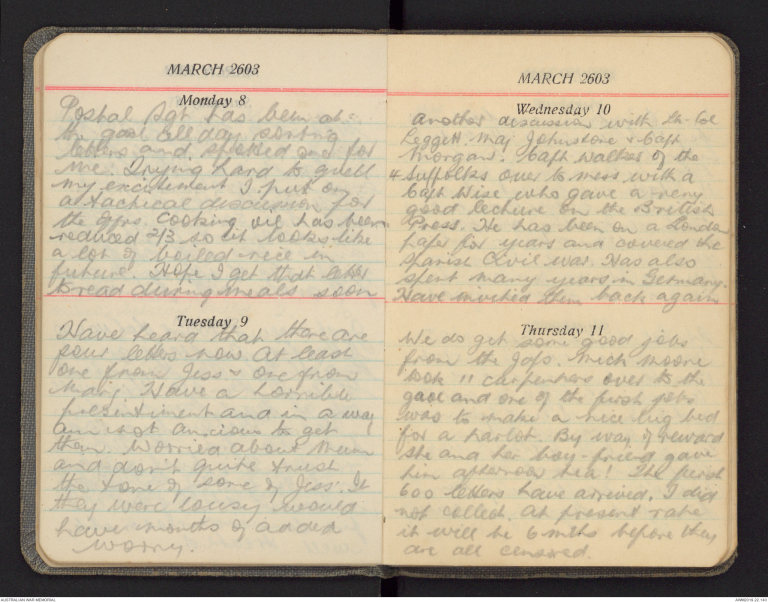 MARCH 2603
Monday 8
Postal Sgt has been at
the gaol all day sorting
letters and spotted one for
me. Trying hard to quell
my excitement I put on
a tactical discussion for
the Offrs. Cooking oil has been
reduced 2/3 so it looks like
a lot of boiled rice in
future. Hope I get that letter
to read during meals soon
Tuesday 9
Have heard that there are
four letters now at least
one from Jess & one from
Mary. Have a horrible
presentiment and in a way
am not anxious to get
them. Worried about Mum
and don't quite trust
the tone of some of Jess'. If
they were lousy would
have months of added
worry.
MARCH 2603
Wednesday 10
Another discussion with Lt-Col
Leggett. Maj Johnstone & Capt
Morgan. Capt Walker of the
4 Suffolks over to mess with a
Capt Wise who gave a very
good lecture on the British
Press. He has been on a London
paper for years and covered the
Spanish Civil War. Has also
spent many years in Germany.
Have invited them back again
Thursday 11
We do get some good jobs
from the Japs. Mick Moore
took 11 carpenters over to the
gaol and one of the first jobs
was to make a nice big bed
for a harlot. By way of reward
she and her boy-friend gave
him afternoon tea! The first
600 letters have arrived. I did
not collect. At present rate
it will be 6 mths before they
are all censored.
AUSTRALIAN WAR MEMORIAL